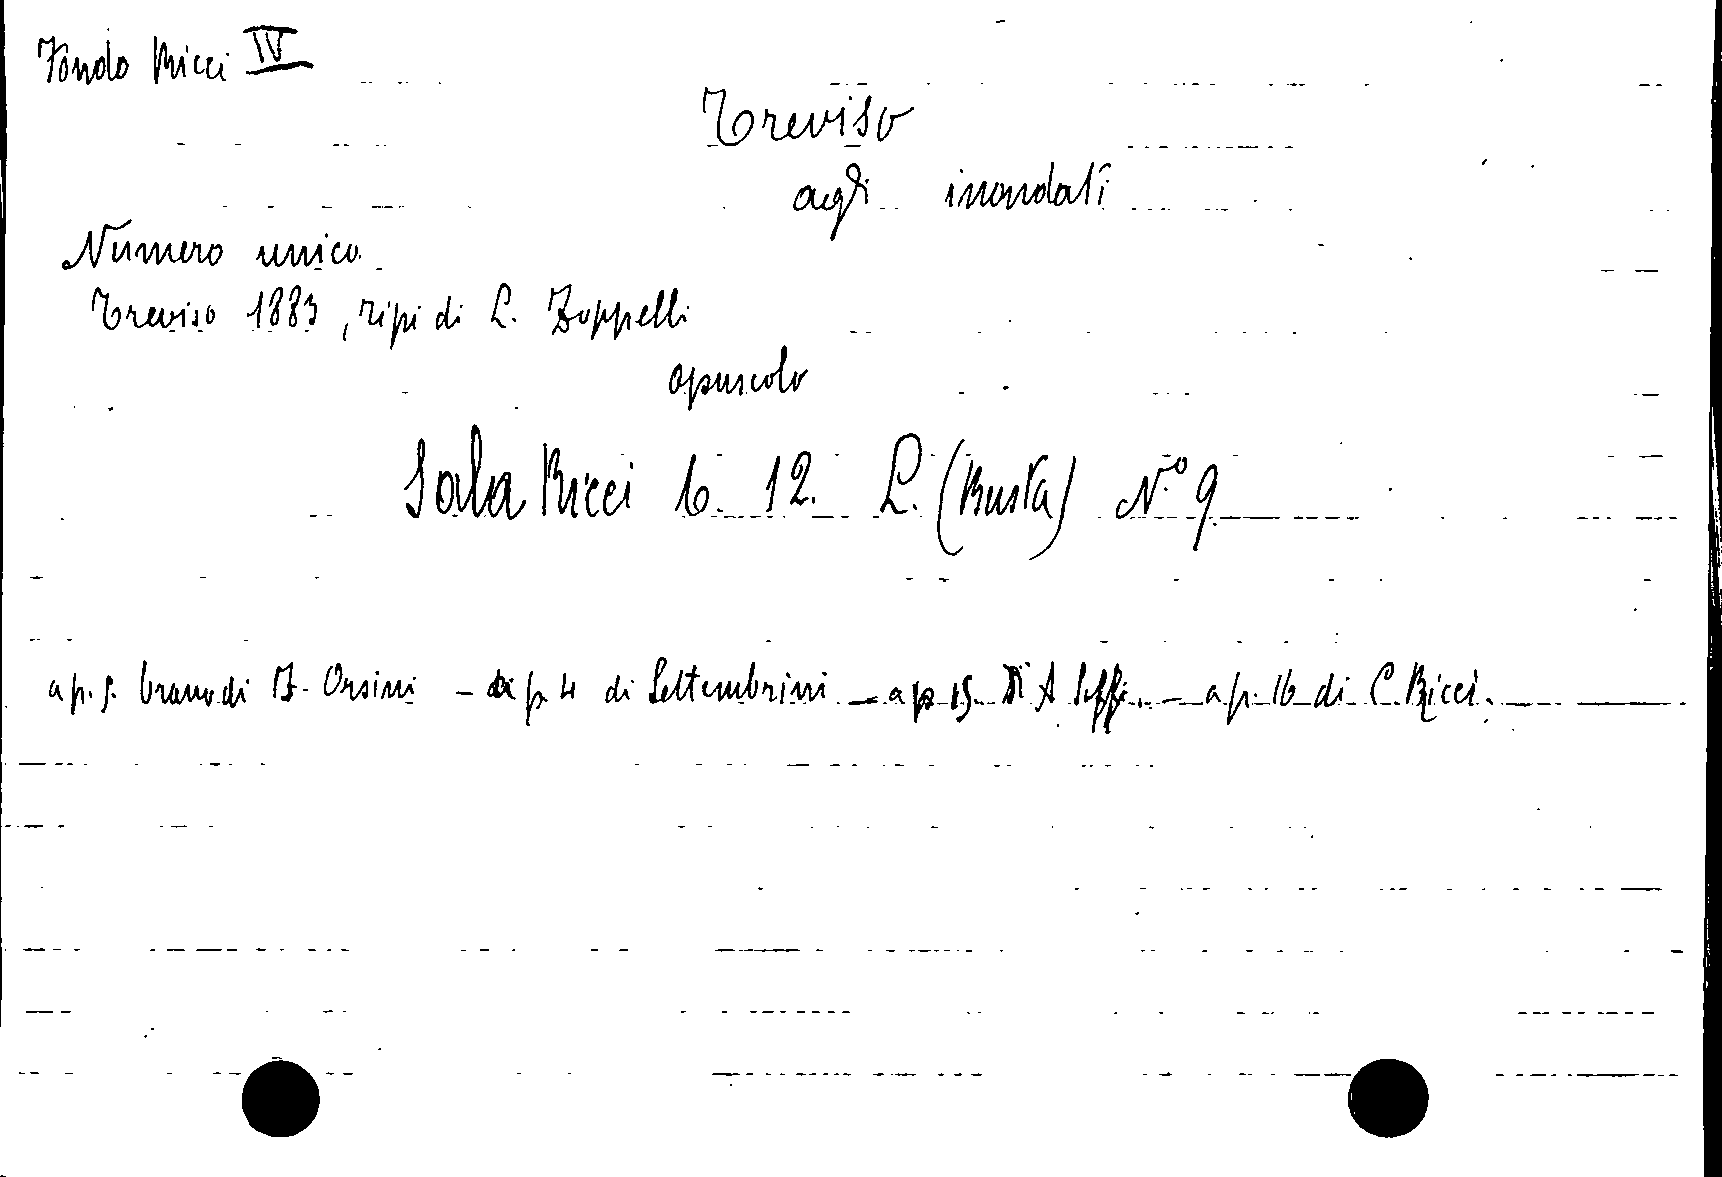 Fondo Ricci IV
Treviso
agli inondati
Numero unico
Treviso 1883, tipi di L. Zoppelli
opuscolo
Sala Ricci 6 12. L. (Busta) N.º 9
a p. 5. brano di F. Orsini – a p. 4 di Settembrini – a p. 15. di A Saffi. – a p. 16 di C. Ricci.